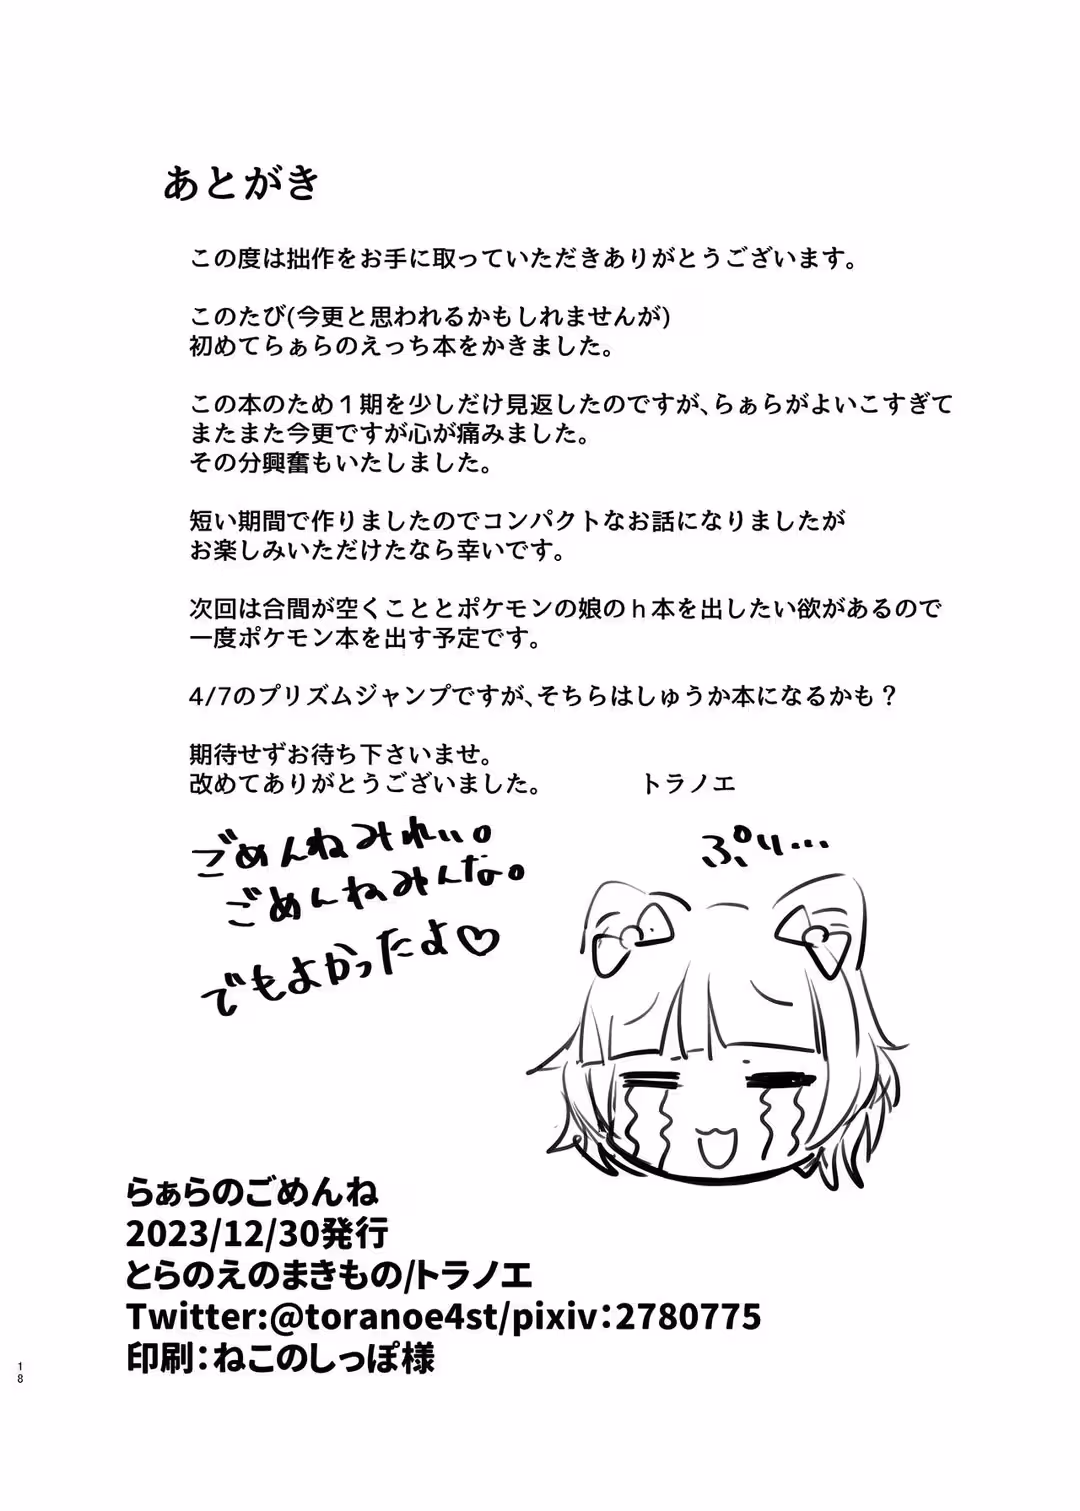 あとがき
この度は拙作をお手に取っていただきありがとうございます。
このたび(今更と思われるかもしれませんが)
初めてらぁらのえっち本をかきました。
この本のため１期を少しだけ見返したのですが、らぁらがよいこすぎて
またまた今更ですが心が痛みました。
その分興奮もいたしました。
短い期間で作りましたのでコンパクトなお話になりましたが
お楽しみいただけたなら幸いです。
次回は合間が空くこととポケモンの娘のｈ本を出したい欲があるので
一度ポケモン本を出す予定です。
4/7のプリズムジャンプですが、そちらはしゅうか本になるかも？
期待せずお待ち下さいませ。
改めてありがとうございました。　トラノエ
ごめんねみれぃ。
ごめんねみんな。
でもよかったよ♡
ぷり…
らぁらのごめんね
2023/12/30発行
とらのえのまきもの/トラノエ
Twitter:@toranoe4st/pixiv：2780775
印刷：ねこのしっぽ様
18